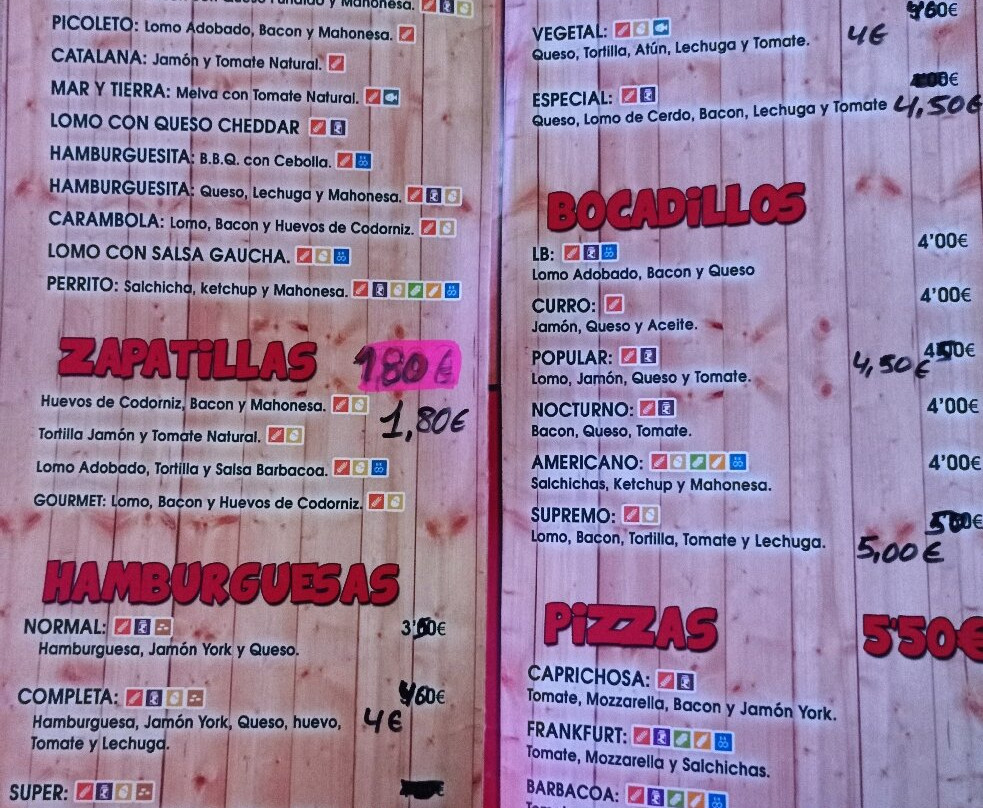 y Mahonesa.
PICOLETO: Lomo Adobado, Bacon y Mahonesa.
CATALANA: Jamón y Tomate Natural.
MAR Y TIERRA: Melva con Tomate Natural.
LOMO CON QUESO CHEDDAR
HAMBURGUESITA: B.B.Q. con Cebolla.
HAMBURGUESITA: Queso, Lechuga y Mahonesa.
CARAMBOLA: Lomo, Bacon y Huevos de Codorniz.
LOMO CON SALSA GAUCHA.
PERRITO: Salchicha, ketchup y Mahonesa.
ZAPATiLLAS 1'80€
Huevos de Codorniz, Bacon y Mahonesa. 1,80€
Tortilla Jamón y Tomate Natural.
Lomo Adobado, Tortilla y Salsa Barbacoa.
GOURMET: Lomo, Bacon y Huevos de Codorniz.
HAMBURGUESAS
NORMAL:
Hamburguesa, Jamón York y Queso.
COMPLETA: 4€
Hamburguesa, Jamón York, Queso, huevo,
Tomate y Lechuga.
SUPER:
VEGETAL: 4€
Queso, Tortilla, Atún, Lechuga y Tomate.
ESPECIAL:
Queso, Lomo de Cerdo, Bacon, Lechuga y Tomate 4,50€
BOCADiLLOS
LB: 4'00€
Lomo Adobado, Bacon y Queso
CURRO: 4'00€
Jamón, Queso y Aceite.
POPULAR: 4,50€
Lomo, Jamón, Queso y Tomate.
NOCTURNO: 4'00€
Bacon, Queso, Tomate.
AMERICANO: 4'00€
Salchichas, Ketchup y Mahonesa.
SUPREMO:
Lomo, Bacon, Tortilla, Tomate y Lechuga. 5,00€
PiZZAS 5'50€
CAPRICHOSA:
Tomate, Mozzarella, Bacon y Jamón York.
FRANKFURT:
Tomate, Mozzarella y Salchichas.
BARBACOA: